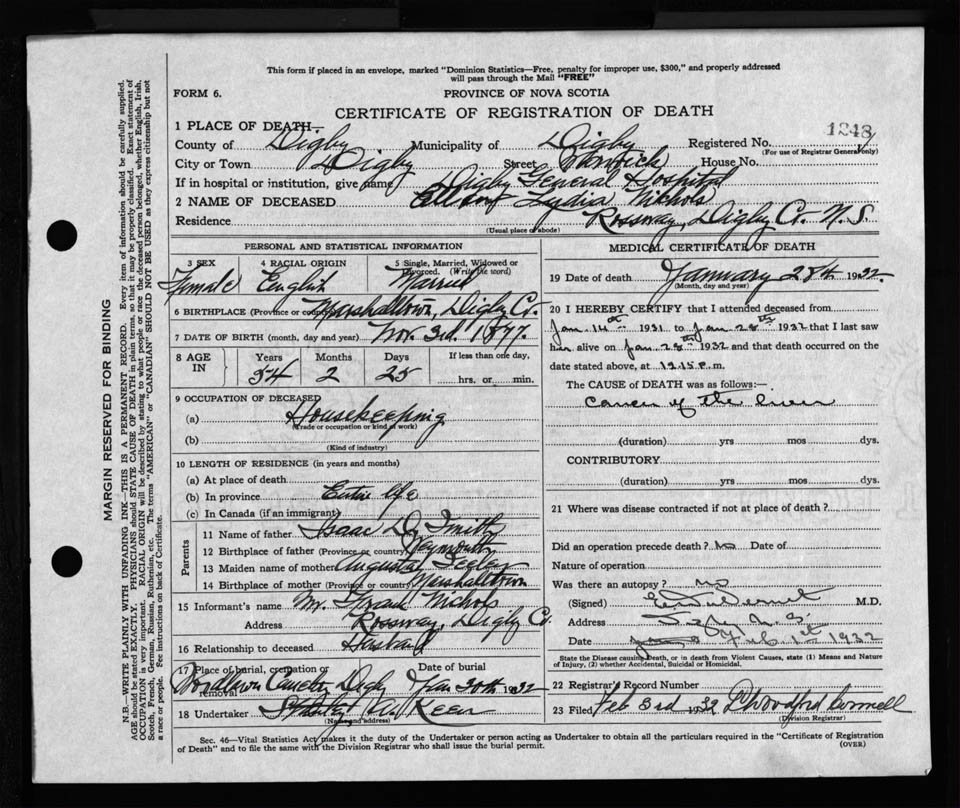 This form if placed in an envelope, marked "Dominion Statistics—Free, penalty for improper use, $300," and properly addressed
will pass through the Mail "FREE"
FORM 6.
PROVINCE OF NOVA SCOTIA
CERTIFICATE OF REGISTRATION OF DEATH
1248
1 PLACE OF DEATH—
County of Digby Municipality of Digby Registered No.
(For use of Registrar General only)
City or Town Digby Street Warwick House No.
If in hospital or institution, give name Digby General Hospital
2 NAME OF DECEASED Lydia Nichols
Residence Rossway, Digby Co. N.S.
(Usual place of abode)
PERSONAL AND STATISTICAL INFORMATION
3 SEX 4 RACIAL ORIGIN 5 Single, Married, Widowed or Divorced. (Write the word)
Female English Married
6 BIRTHPLACE (Province or country) Marshalltown, Digby Co.
7 DATE OF BIRTH (month, day and year) Nov. 3rd. 1877.
8 AGE IN Years Months Days If less than one day,
54 2 25 hrs. or min.
9 OCCUPATION OF DECEASED
(a) Housekeeping
(Trade or occupation or kind of work)
(b)
(Kind of industry)
10 LENGTH OF RESIDENCE (in years and months)
(a) At place of death
(b) In province Entire life
(c) In Canada (if an immigrant)
Parents
11 Name of father Isaac D. Smith
12 Birthplace of father (Province or country) Weymouth
13 Maiden name of mother Augusta
14 Birthplace of mother (Province or country) Marshalltown
15 Informant's name Mr. Frank Nichols
Address Rossway, Digby Co.
16 Relationship to deceased Husband
17 Place of burial, cremation or removal Date of burial
Digby Jan 30th 1932
18 Undertaker
(Name and address)
MEDICAL CERTIFICATE OF DEATH
19 Date of death January 28th 1932
(Month, day and year)
20 I HEREBY CERTIFY that I attended deceased from
Jan. 14th 1931 to Jan. 28th 1932 that I last saw
her alive on Jan. 28th 1932 and that death occurred on
date stated above, at 12.15 P.m.
The CAUSE of DEATH was as follows:—
Cancer of the liver
(duration) yrs mos dys.
CONTRIBUTORY
(duration) yrs mos dys.
21 Where was disease contracted if not at place of death?
Did an operation precede death? no Date of
Nature of operation
Was there an autopsy? no
(Signed) M.D.
Address Digby N.S.
Date Feb 1st 1932
State the Disease causing Death, or in death from Violent Causes, state (1) Means and Nature
of Injury, (2) whether Accidental, Suicidal or Homicidal.
22 Registrar's Record Number
23 Filed Feb 3rd 1932
(Division Registrar)
Sec. 46—Vital Statistics Act, makes it the duty of the Undertaker or person acting as Undertaker to obtain all the particulars required in the "Certificate of Registration
of Death" and to file the same with the Division Registrar who shall issue the burial permit.
(OVER)
MARGIN RESERVED FOR BINDING
N.B.—WRITE PLAINLY WITH UNFADING INK—THIS IS A PERMANENT RECORD. Every item of information should be carefully supplied.
AGE should be stated EXACTLY. PHYSICIANS should STATE CAUSE OF DEATH in plain terms, so that it may be properly classified. Exact statement of
OCCUPATION is very important. RACIAL ORIGIN will be described by stating to what people or race the deceased person belonged, whether English, Irish,
Scotch, French, German, Russian, Ruthenian, etc. The terms "AMERICAN" or "CANADIAN" SHOULD NOT BE USED as they express citizenship but not
a race or people. See instructions on back of Certificate.